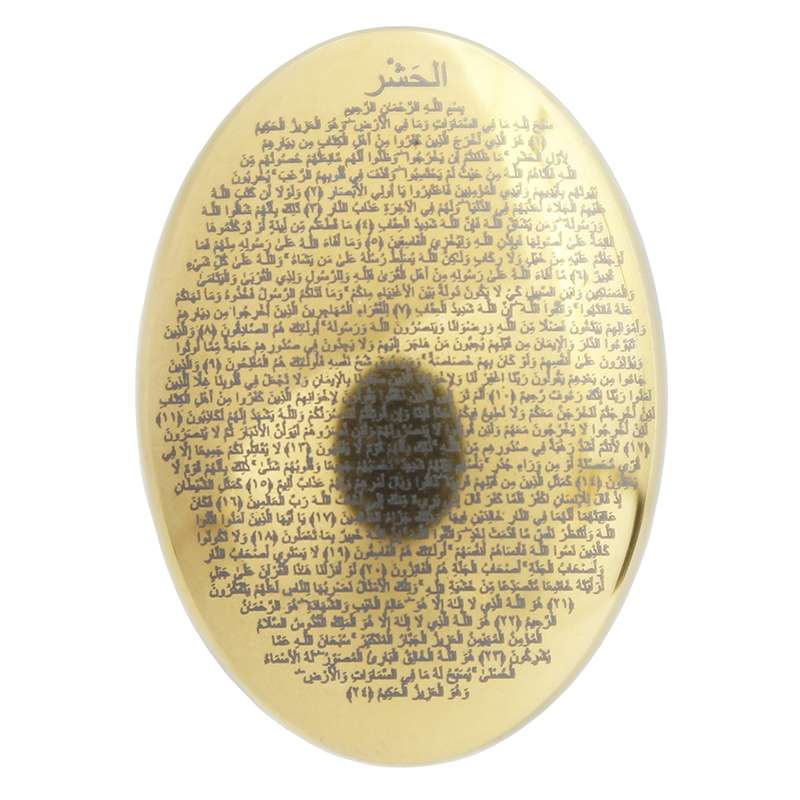 الحَشْر
بِسْمِ اللَّهِ الرَّحْمَٰنِ الرَّحِيمِ
سَبَّحَ لِلَّهِ مَا فِي السَّمَاوَاتِ وَمَا فِي الْأَرْضِ ۖ وَهُوَ الْعَزِيزُ الْحَكِيمُ
هُوَ الَّذِي أَخْرَجَ الَّذِينَ كَفَرُوا مِنْ أَهْلِ الْكِتَابِ مِن دِيَارِهِمْ
لِأَوَّلِ الْحَشْرِ ۚ مَا ظَنَنتُمْ أَن يَخْرُجُوا ۖ وَظَنُّوا أَنَّهُم مَّانِعَتُهُمْ حُصُونُهُم مِّنَ
اللَّهِ فَأَتَاهُمُ اللَّهُ مِنْ حَيْثُ لَمْ يَحْتَسِبُوا ۖ وَقَذَفَ فِي قُلُوبِهِمُ الرُّعْبَ ۚ يُخْرِبُونَ
بُيُوتَهُم بِأَيْدِيهِمْ وَأَيْدِي الْمُؤْمِنِينَ فَاعْتَبِرُوا يَا أُولِي الْأَبْصَارِ (٢) وَلَوْلَا أَن كَتَبَ اللَّهُ
عَلَيْهِمُ الْجَلَاءَ لَعَذَّبَهُمْ فِي الدُّنْيَا ۖ وَلَهُمْ فِي الْآخِرَةِ عَذَابُ النَّارِ (٣) ذَٰلِكَ بِأَنَّهُمْ شَاقُّوا اللَّهَ
وَرَسُولَهُ ۖ وَمَن يُشَاقِّ اللَّهَ فَإِنَّ اللَّهَ شَدِيدُ الْعِقَابِ (٤) مَا قَطَعْتُم مِّن لِّينَةٍ أَوْ تَرَكْتُمُوهَا
قَائِمَةً عَلَىٰ أُصُولِهَا فَبِإِذْنِ اللَّهِ وَلِيُخْزِيَ الْفَاسِقِينَ (٥) وَمَا أَفَاءَ اللَّهُ عَلَىٰ رَسُولِهِ مِنْهُمْ فَمَا
أَوْجَفْتُمْ عَلَيْهِ مِنْ خَيْلٍ وَلَا رِكَابٍ وَلَٰكِنَّ اللَّهَ يُسَلِّطُ رُسُلَهُ عَلَىٰ مَن يَشَاءُ ۚ وَاللَّهُ عَلَىٰ كُلِّ شَيْءٍ
قَدِيرٌ (٦) مَّا أَفَاءَ اللَّهُ عَلَىٰ رَسُولِهِ مِنْ أَهْلِ الْقُرَىٰ فَلِلَّهِ وَلِلرَّسُولِ وَلِذِي الْقُرْبَىٰ وَالْيَتَامَىٰ
وَالْمَسَاكِينِ وَابْنِ السَّبِيلِ كَيْ لَا يَكُونَ دُولَةً بَيْنَ الْأَغْنِيَاءِ مِنكُمْ ۚ وَمَا آتَاكُمُ الرَّسُولُ فَخُذُوهُ وَمَا نَهَاكُمْ
عَنْهُ فَانتَهُوا ۚ وَاتَّقُوا اللَّهَ ۖ إِنَّ اللَّهَ شَدِيدُ الْعِقَابِ (٧) لِلْفُقَرَاءِ الْمُهَاجِرِينَ الَّذِينَ أُخْرِجُوا مِن دِيَارِهِمْ
وَأَمْوَالِهِمْ يَبْتَغُونَ فَضْلًا مِّنَ اللَّهِ وَرِضْوَانًا وَيَنصُرُونَ اللَّهَ وَرَسُولَهُ ۚ أُولَٰئِكَ هُمُ الصَّادِقُونَ (٨) وَالَّذِينَ
تَبَوَّءُوا الدَّارَ وَالْإِيمَانَ مِن قَبْلِهِمْ يُحِبُّونَ مَنْ هَاجَرَ إِلَيْهِمْ وَلَا يَجِدُونَ فِي صُدُورِهِمْ حَاجَةً مِّمَّا أُوتُوا
وَيُؤْثِرُونَ عَلَىٰ أَنفُسِهِمْ وَلَوْ كَانَ بِهِمْ خَصَاصَةٌ ۚ شُحَّ نَفْسِهِ فَأُولَٰئِكَ هُمُ الْمُفْلِحُونَ (٩) وَالَّذِينَ
جَاءُوا مِن بَعْدِهِمْ يَقُولُونَ رَبَّنَا اغْفِرْ لَنَا وَلِإِخْوَانِنَا الَّذِينَ بِالْإِيمَانِ وَلَا تَجْعَلْ فِي قُلُوبِنَا غِلًّا لِّلَّذِينَ
آمَنُوا رَبَّنَا إِنَّكَ رَءُوفٌ رَّحِيمٌ (١٠) لِإِخْوَانِهِمُ الَّذِينَ كَفَرُوا مِنْ أَهْلِ الْكِتَابِ
لَئِنْ أُخْرِجْتُمْ لَنَخْرُجَنَّ مَعَكُمْ وَلَا نُطِيعُ فِيكُمْ وَاللَّهُ يَشْهَدُ إِنَّهُمْ لَكَاذِبُونَ (١١)
لَئِنْ أُخْرِجُوا لَا يَخْرُجُونَ مَعَهُمْ لَيُوَلُّنَّ الْأَدْبَارَ ثُمَّ لَا يُنصَرُونَ
(١٢) لَأَنتُمْ أَشَدُّ رَهْبَةً فِي صُدُورِهِم مِّنَ اللَّهِ ۚ ذَٰلِكَ (١٣) لَا يُقَاتِلُونَكُمْ جَمِيعًا إِلَّا فِي
قُرًى مُّحَصَّنَةٍ أَوْ مِن وَرَاءِ جُدُرٍ ۚ وَقُلُوبُهُمْ شَتَّىٰ ۚ ذَٰلِكَ بِأَنَّهُمْ قَوْمٌ لَّا
يَعْقِلُونَ (١٤) كَمَثَلِ الَّذِينَ مِن قَبْلِهِمْ عَذَابٌ أَلِيمٌ (١٥) كَمَثَلِ الشَّيْطَانِ
إِذْ قَالَ لِلْإِنسَانِ اكْفُرْ فَلَمَّا كَفَرَ قَالَ اللَّهَ رَبَّ الْعَالَمِينَ (١٦) فَكَانَ
عَاقِبَتَهُمَا أَنَّهُمَا فِي النَّارِ خَالِدَيْنِ فِيهَا ۚ وَذَٰلِكَ جَزَاءُ الظَّالِمِينَ (١٧) يَا أَيُّهَا الَّذِينَ آمَنُوا اتَّقُوا
اللَّهَ وَلْتَنظُرْ نَفْسٌ مَّا قَدَّمَتْ لِغَدٍ ۖ وَاتَّقُوا خَبِيرٌ بِمَا تَعْمَلُونَ (١٨) وَلَا تَكُونُوا
كَالَّذِينَ نَسُوا اللَّهَ فَأَنسَاهُمْ أَنفُسَهُمْ ۚ أُولَٰئِكَ هُمُ الْفَاسِقُونَ (١٩) لَا يَسْتَوِي أَصْحَابُ النَّارِ
وَأَصْحَابُ الْجَنَّةِ ۚ أَصْحَابُ الْجَنَّةِ هُمُ الْفَائِزُونَ (٢٠) لَوْ أَنزَلْنَا هَٰذَا الْقُرْآنَ عَلَىٰ جَبَلٍ
لَّرَأَيْتَهُ خَاشِعًا مُّتَصَدِّعًا مِّنْ خَشْيَةِ اللَّهِ ۚ وَتِلْكَ الْأَمْثَالُ نَضْرِبُهَا لِلنَّاسِ لَعَلَّهُمْ يَتَفَكَّرُونَ
(٢١) هُوَ اللَّهُ الَّذِي لَا إِلَٰهَ إِلَّا هُوَ ۖ عَالِمُ الْغَيْبِ وَالشَّهَادَةِ ۖ هُوَ الرَّحْمَٰنُ
الرَّحِيمُ (٢٢) هُوَ اللَّهُ الَّذِي لَا إِلَٰهَ إِلَّا هُوَ الْمَلِكُ الْقُدُّوسُ السَّلَامُ
الْمُؤْمِنُ الْمُهَيْمِنُ الْعَزِيزُ الْجَبَّارُ الْمُتَكَبِّرُ ۚ سُبْحَانَ اللَّهِ عَمَّا
يُشْرِكُونَ (٢٣) هُوَ اللَّهُ الْخَالِقُ الْبَارِئُ الْمُصَوِّرُ ۖ لَهُ الْأَسْمَاءُ
الْحُسْنَىٰ ۚ يُسَبِّحُ لَهُ مَا فِي السَّمَاوَاتِ وَالْأَرْضِ ۖ
وَهُوَ الْعَزِيزُ الْحَكِيمُ (٢٤)